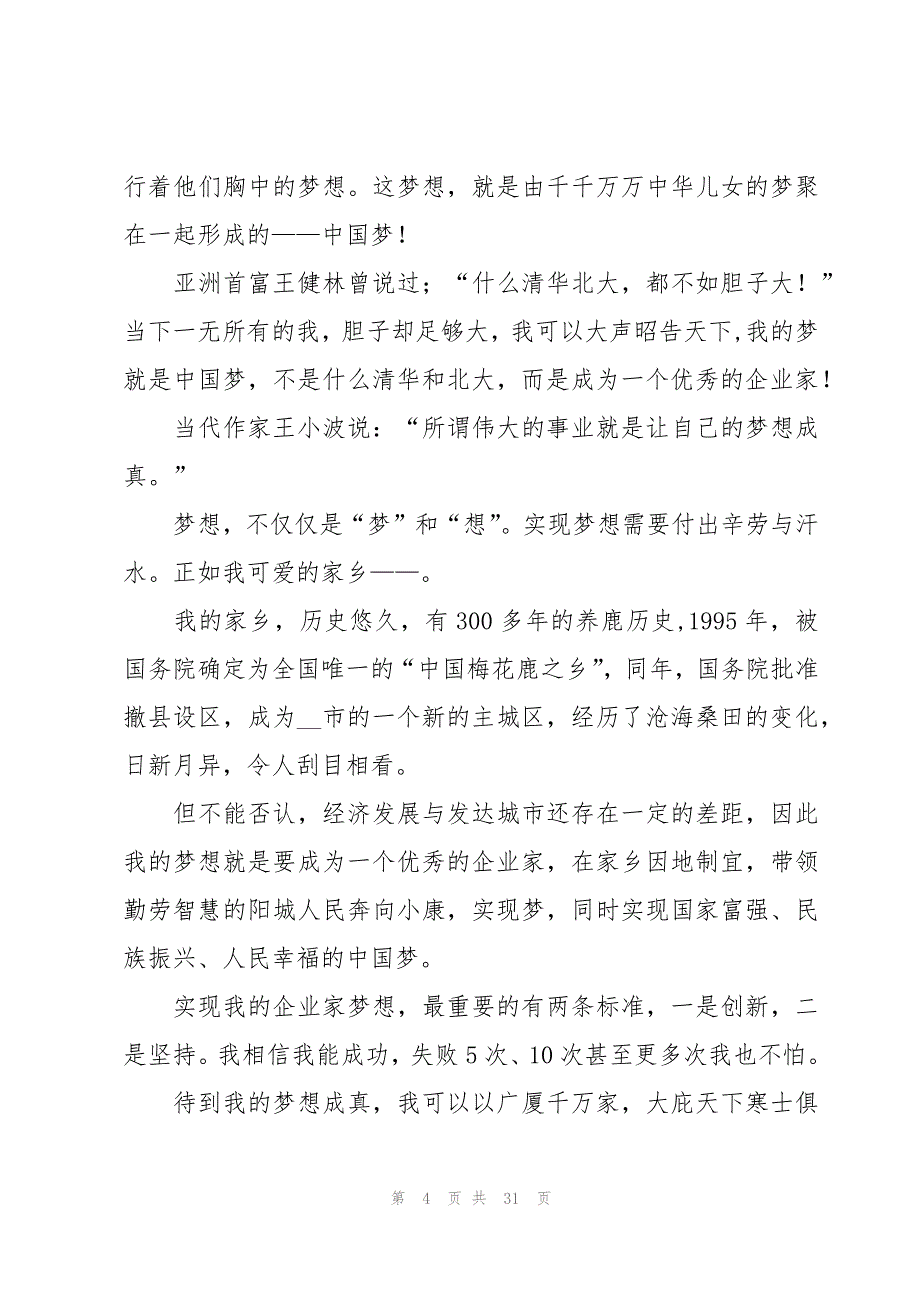 行着他们胸中的梦想。这梦想，就是由千千万万中华儿女的梦聚
在一起形成的——中国梦！
亚洲首富王健林曾说过；“什么清华北大，都不如胆子大！”
当下一无所有的我，胆子却足够大，我可以大声昭告天下,我的梦
就是中国梦，不是什么清华和北大，而是成为一个优秀的企业家！
当代作家王小波说：“所谓伟大的事业就是让自己的梦想成
真。”
梦想，不仅仅是“梦”和“想”。实现梦想需要付出辛劳与汗
水。正如我可爱的家乡——。
我的家乡，历史悠久，有 300 多年的养鹿历史,1995 年，被
国务院确定为全国唯一的“中国梅花鹿之乡”，同年，国务院批准
撤县设区，成为__市的一个新的主城区，经历了沧海桑田的变化，
日新月异，令人刮目相看。
但不能否认，经济发展与发达城市还存在一定的差距，因此
我的梦想就是要成为一个优秀的企业家，在家乡因地制宜，带领
勤劳智慧的阳城人民奔向小康，实现梦，同时实现国家富强、民
族振兴、人民幸福的中国梦。
实现我的企业家梦想，最重要的有两条标准，一是创新，二
是坚持。我相信我能成功，失败 5 次、10 次甚至更多次我也不怕。
待到我的梦想成真，我可以以广厦千万家，大庇天下寒士俱
第 4 页 共 31 页